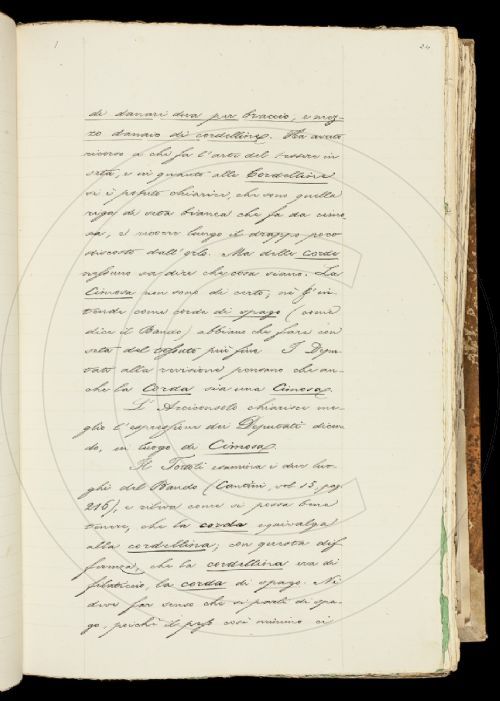 24
di danari dua per braccio, e mez-
zo danaio di cordellina. Ha avuto
ricorso a chi fa l'arte del tessere in
seta, e in quanto alle Cordellina
si è potuto chiarire, che sono quella
riga di seta bianca che fa da cimo
sa, e ricorre lungo il drappo poco
discosto dall'orlo. Ma delle corde
nessuno sa dire che cosa siano. La
Cimosa non sono di certo, nè s'in-
tende come corde di spago (come
dice il Bando) abbiano che fare con
seta del tessuto più fine. I Depu-
tati alla revisione pensano che an-
che la Corda sia una Cimosa.
L'Arciconsolo chiarisce me-
glio l'espressione dei Deputati dicen-
do, in luogo di Cimosa
Il Tortoli esamina i due luo-
ghi del Bando (Cantini, vol 13, pag
216), e rileva come si possa bene
tenere, che la corda equivalga
alla cordellina; con questa dif-
ferenza, che la cordellina era di
filaticcio, la corda di spago. Nè
deve far senso che si parli di spa-
go, poichè il peso così minimo ci